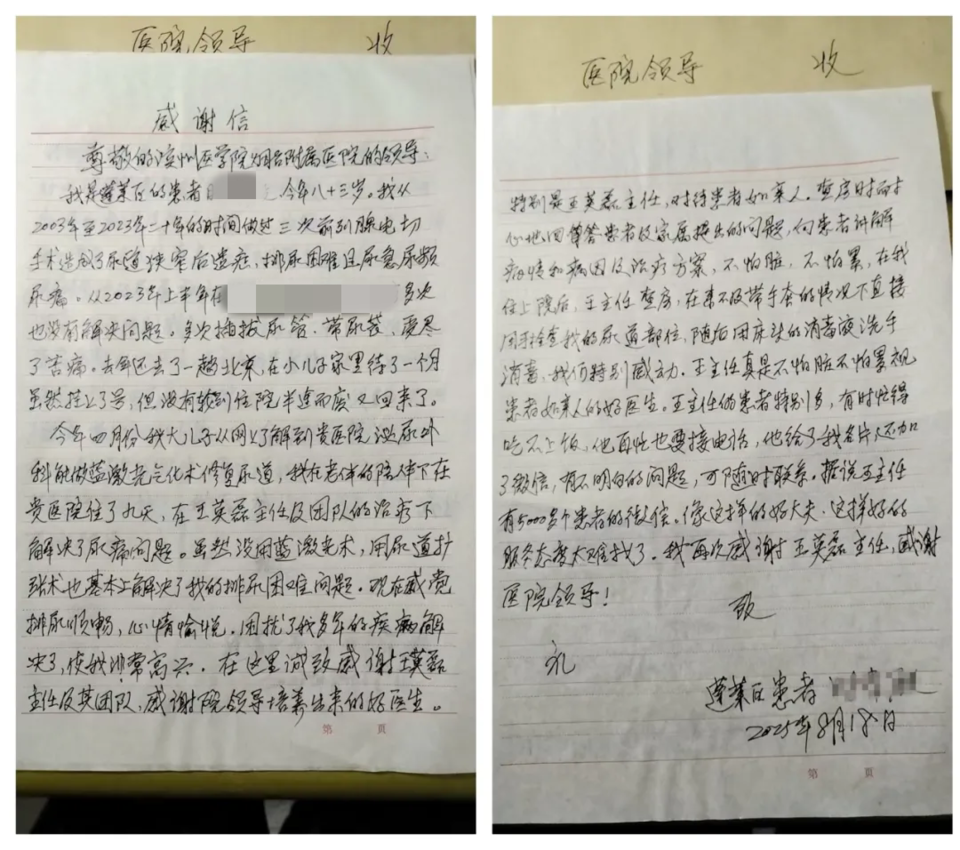 医院领导 收
感谢信
尊敬的滨州医学院烟台附属医院的领导:
我是蓬莱区的患者 今年八十三岁。我从
2003年至2023年二十年的时间做过三次前列腺电切
手术造成了尿道狭窄后遗症,排尿困难且尿急尿频
尿痛。从2023年上半年在 多次
也没有解决问题。多次插拔尿管、带尿袋,受尽
了苦痛。去年还去了一趟北京,在小儿子家里待了一个月
虽然挂上了号,但没有轮到住院半途而废又回来了。
今年四月份我大儿子从网上了解到贵医院泌尿外
科能做蓝激光气化术修复尿道,我在老伴的陪伴下在
贵医院住了九天,在王英磊主任及团队的治疗下
解决了尿痛问题。虽然没用蓝激光术,用尿道扩
张术也基本上解决了我的排尿困难问题。现在感觉
排尿顺畅,心情愉悦。困扰了我多年的疾病解
决了,使我非常高兴。在这里诚致感谢王英磊
主任及其团队,感谢院领导培养出来的好医生。
第 页
医院领导 收
特别是王英磊主任,对待患者如亲人。查房时耐
心地回答患者及家属提出的问题,向患者讲解
病情和病因及治疗方案,不怕脏,不怕累,在我
住上院后,王主任查房,在来不及带手套的情况下直接
用手检查我的尿道部位,随后用床头的消毒液洗手
消毒,我们特别感动。王主任真是不怕脏不怕累视
患者如亲人的好医生。王主任的患者特别多,有时忙得
吃不上饭,他再忙也要接电话,他给了我名片还加
了微信,有不明白的问题,可随时联系。据说王主任
有5000多个患者的微信。像这样的好大夫、这样好的
服务态度太难找了。我再次感谢王英磊主任,感谢
医院领导!
致
礼
蓬莱区患者
2025年8月18日
第 页